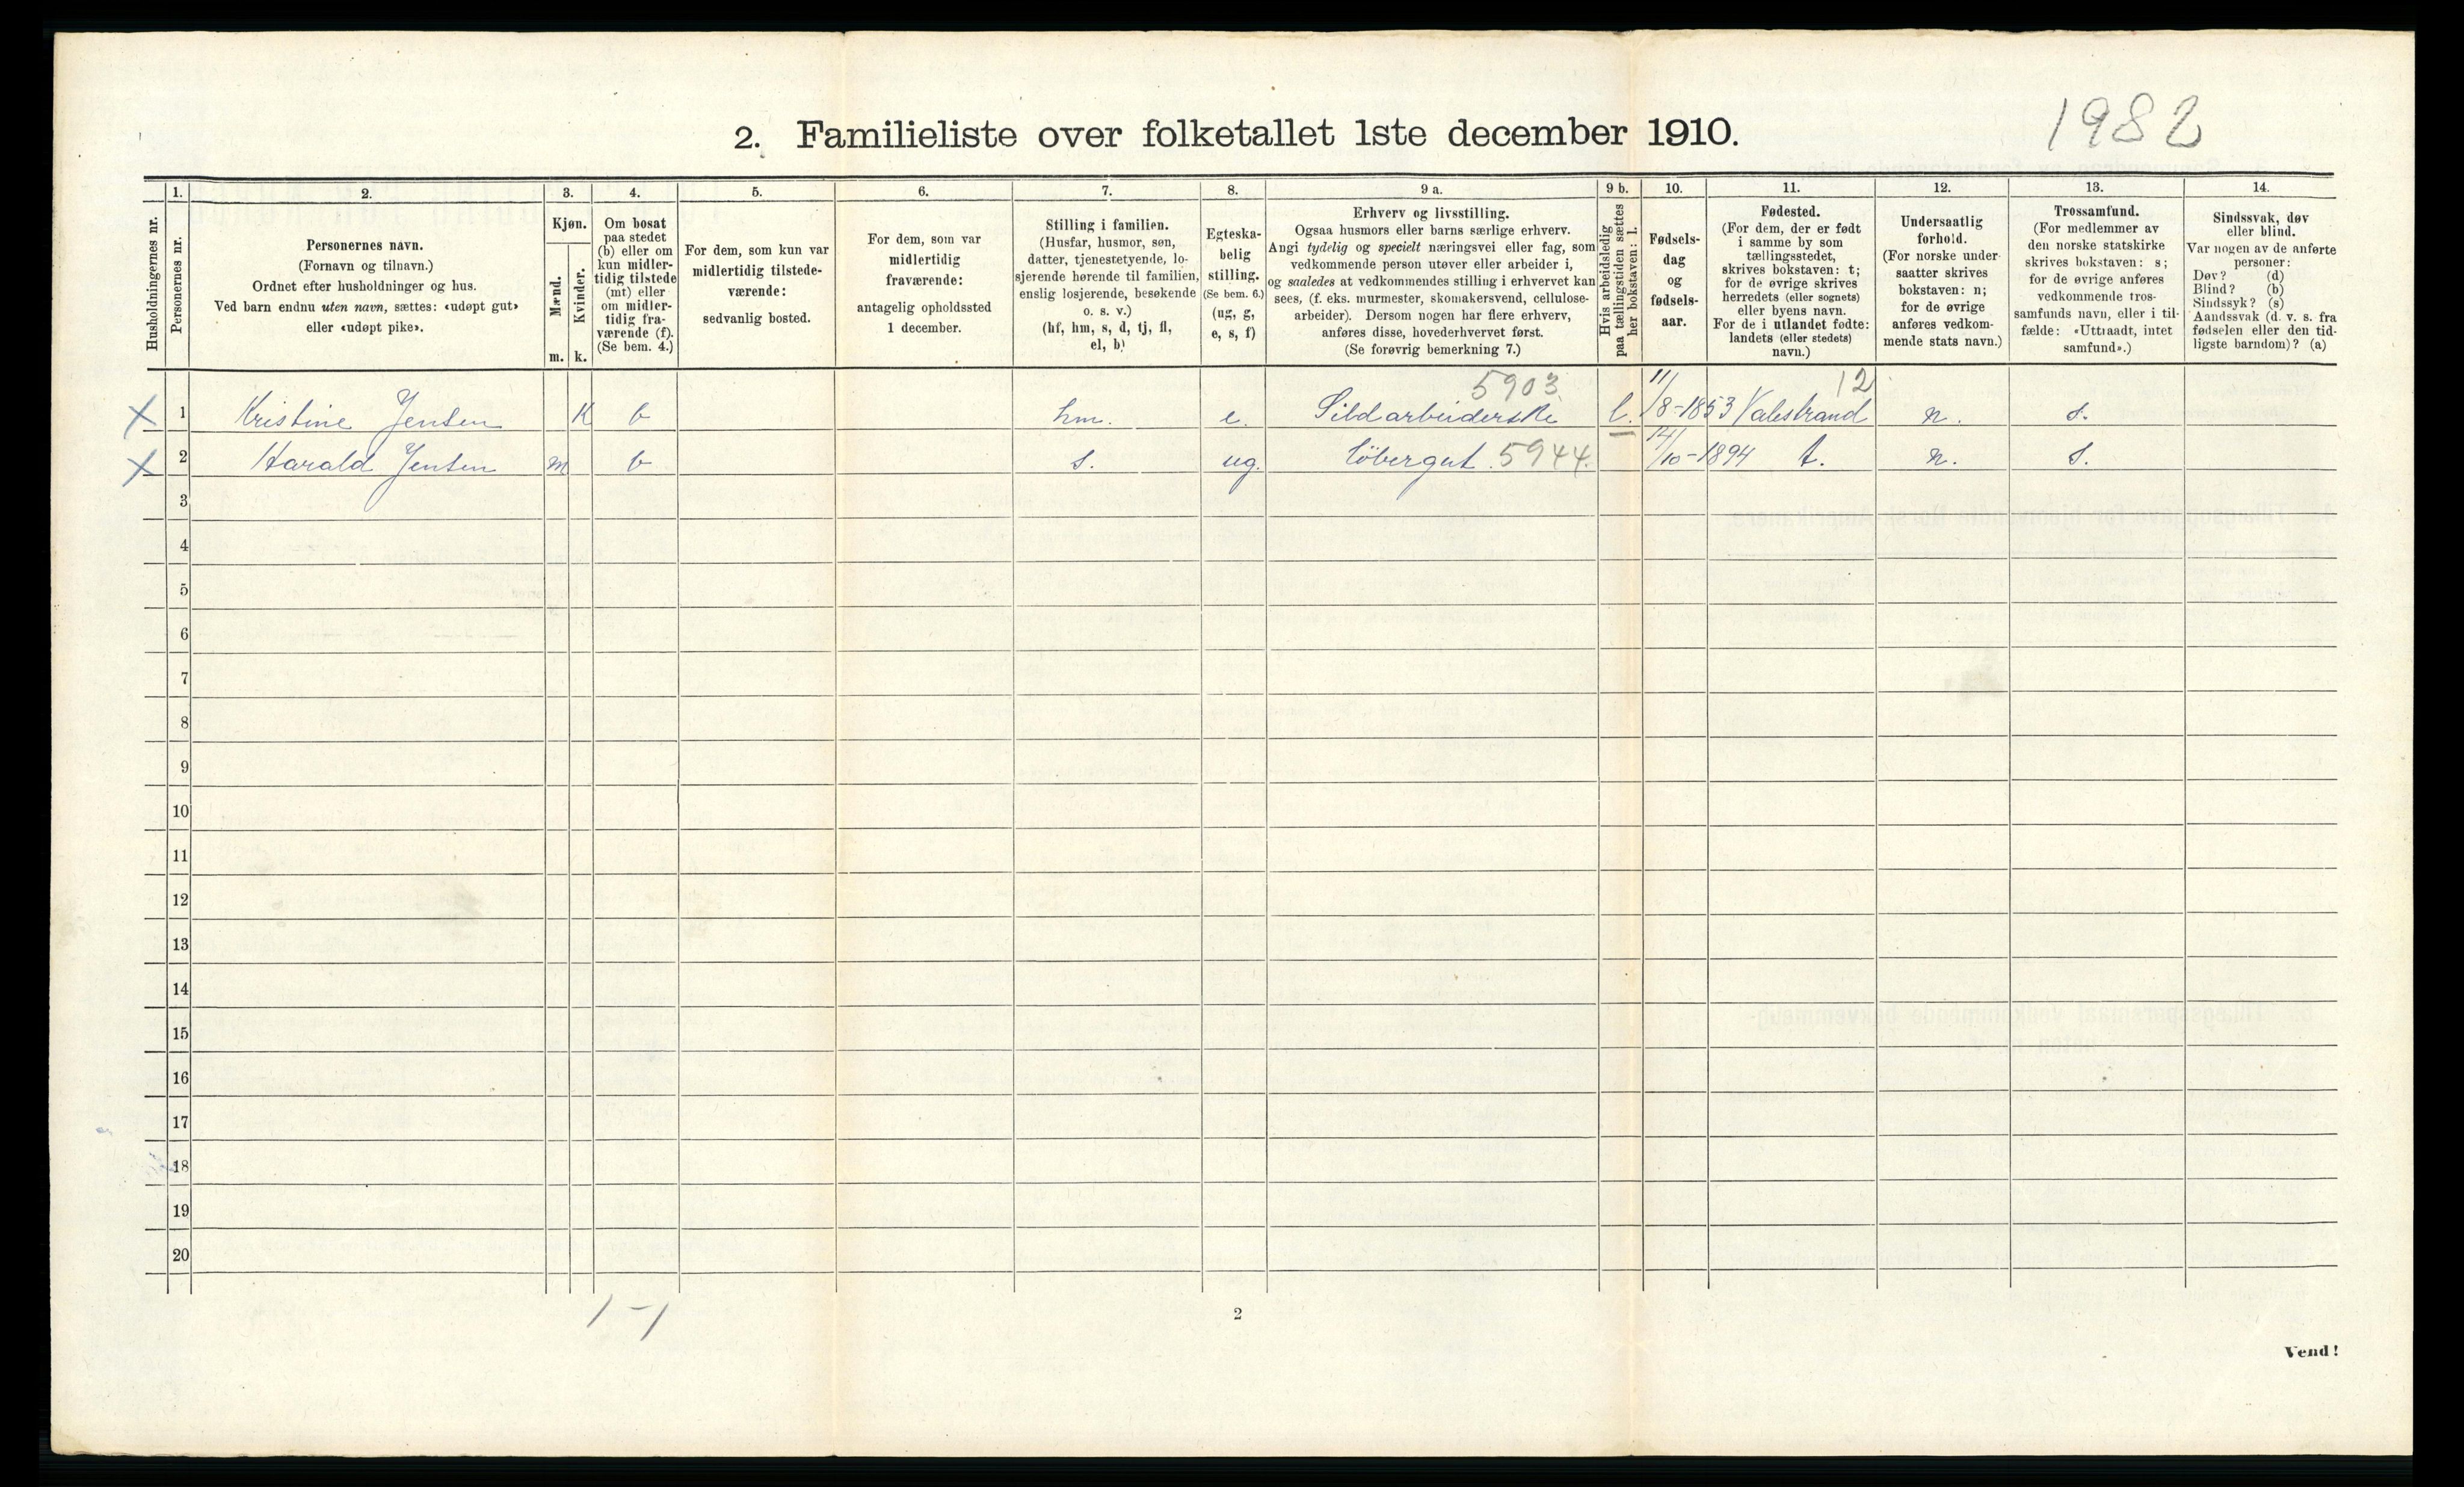 1982
2. Familieliste over folketallet 1ste december 1910.
Husholdningernes nr.
1.
Personernes nr.
2.
Personernes navn.
(Fornavn og tilnavn.)
Ordnet efter husholdninger og hus.
Ved barn endnu uten navn, sættes: «udøpt gut»
eller «udøpt pike».
3.
Kjøn.
Mænd.
Kvinder.
m. k.
4.
Om bosat
paa stedet
(b) eller om
kun midler-
tidig tilstede
(mt) eller
om midler-
tidig fra-
værende (f).
(Se bem. 4.)
5.
For dem, som kun var
midlertidig tilstede-
værende:
sedvanlig bosted.
6.
For dem, som var
midlertidig
fraværende:
antagelig opholdssted
1 december.
7.
Stilling i familien.
(Husfar, husmor, søn,
datter, tjenestetyende, lo-
sjerende hørende til familien,
enslig losjerende, besøkende
o. s. v.)
(hf, hm, s, d, tj, fl,
el, b)
8.
Egteska-
belig
stilling.
(Se bem. 6.)
(ug, g,
e, s, f)
9 a.
Erhverv og livsstilling.
Ogsaa husmors eller barns særlige erhverv.
Angi tydelig og specielt næringsvei eller fag, som
vedkommende person utøver eller arbeider i,
og saaledes at vedkommendes stilling i erhvervet kan
sees, (f. eks. murmester, skomakersvend, cellulose-
arbeider). Dersom nogen har flere erhverv,
anføres disse, hovederhvervet først.
(Se forøvrig bemerkning 7.)
9 b.
Hvis arbeidsledig
paa tællingstiden sættes
her bokstaven: l.
10.
Fødsels-
dag
og
fødsels-
aar.
11.
Fødested.
(For dem, der er født
i samme by som
tællingsstedet,
skrives bokstaven: t;
for de øvrige skrives
herredets (eller sognets)
eller byens navn.
For de i utlandet fødte:
landets (eller stedets)
navn.)
12.
Undersaatlig
forhold.
(For norske under-
saatter skrives
bokstaven: n;
for de øvrige
anføres vedkom-
mende stats navn.)
13.
Trossamfund.
(For medlemmer av
den norske statskirke
skrives bokstaven: s;
for de øvrige anføres
vedkommende tros-
samfunds navn, eller i til-
fælde: «Uttraadt, intet
samfund».)
14.
Sindssvak, døv
eller blind.
Var nogen av de anførte
personer:
Døv? (d)
Blind? (b)
Sindssyk? (s)
Aandssvak (d. v. s. fra
fødselen eller den tid-
ligste barndom)? (a)
5903 12
X 1 Kristine Jensen K b hm. e. Sildarbeiderske l. 11/8-1853 Valestrand n. s.
X 2 Harald Jensen m b s. ug. Löbergut 5944. 14/10-1894 t. n. s.
3
4
5
6
7
8
9
10
11
12
13
14
15
16
17
18
19
20
1-1
2
Vend!